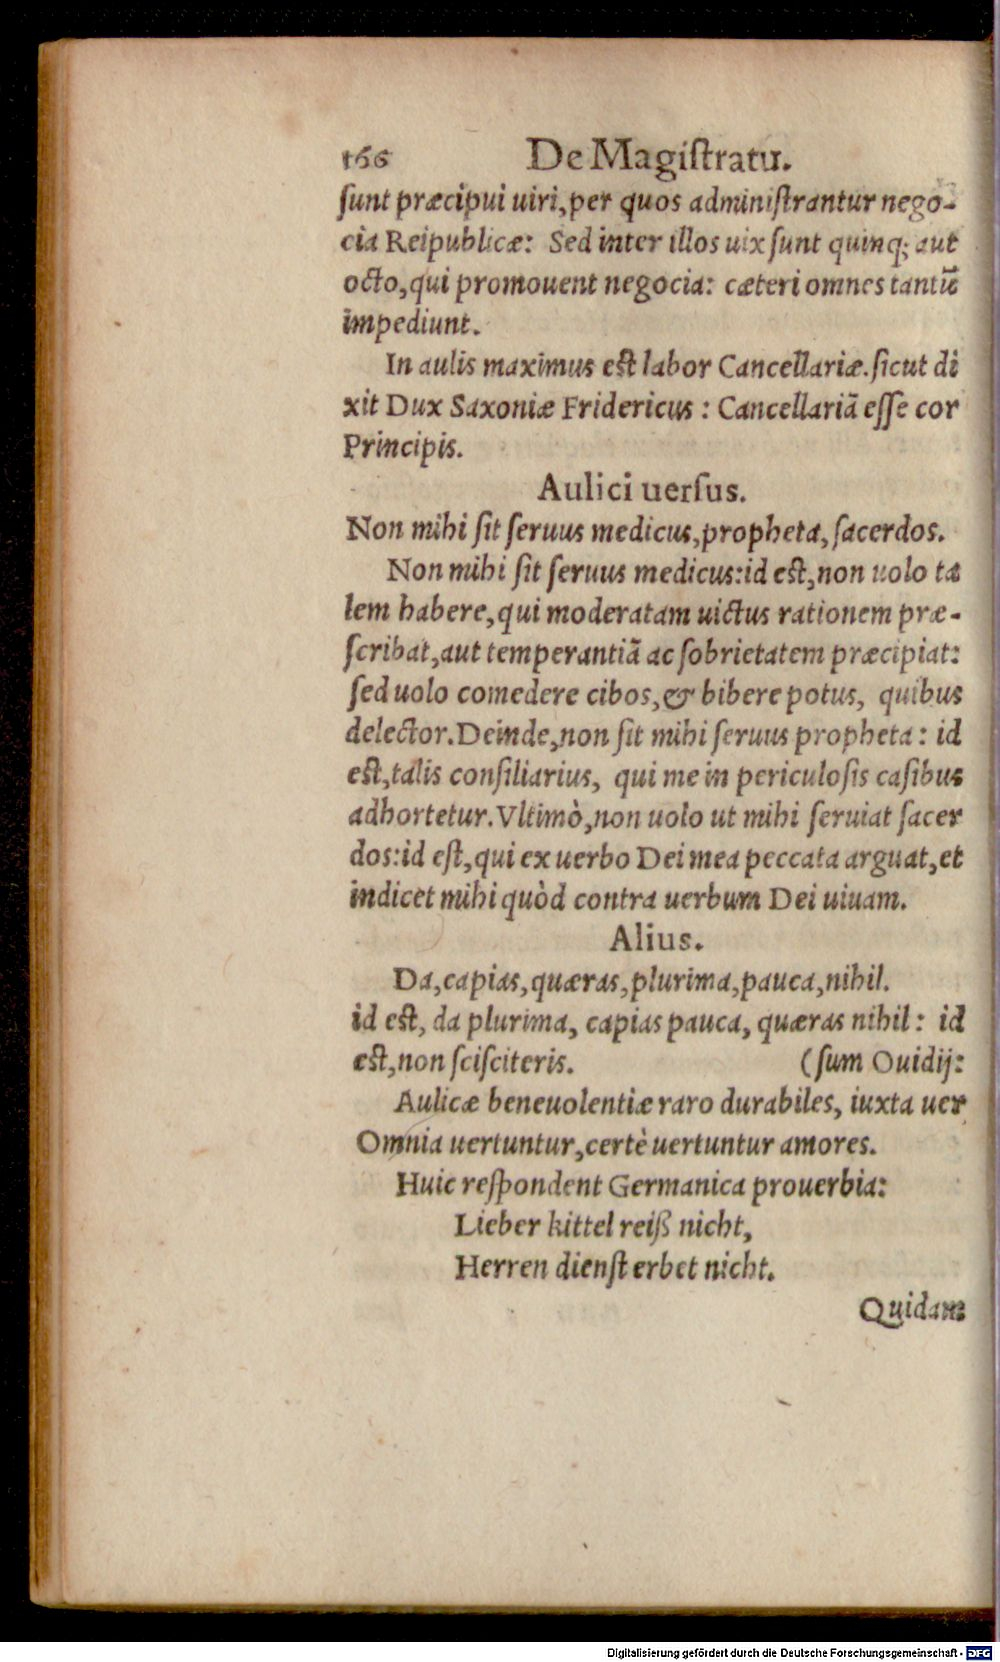 166 De Magiſtratu.
ſunt præcipui uiri, per quos adminiſtrantur nego-
cia Reipublicæ: Sed inter illos uix ſunt quinq; aut
octo, qui promouent negocia: cæteri omnes tantū
impediunt.
In aulis maximus eſt labor Cancellariæ. ſicut di
xit Dux Saxoniæ Fridericus : Cancellariā eſſe cor
Principis.
Aulici uerſus.
Non mihi ſit ſeruus medicus, propheta, ſacerdos.
Non mihi ſit ſeruus medicus: id eſt, non uolo ta
lem habere, qui moderatam uictus rationem præ-
ſcribat, aut temperantiā ac ſobrietatem præcipiat:
ſed uolo comedere cibos, & bibere potus, quibus
delector. Deinde, non ſit mihi ſeruus propheta : id
eſt, talis conſiliarius, qui me in periculoſis caſibus
adhortetur. Vltimò, non uolo ut mihi ſeruiat ſacer
dos: id eſt, qui ex uerbo Dei mea peccata arguat, et
indicet mihi quòd contra uerbum Dei uiuam.
Alius.
Da, capias, quæras, plurima, pauca, nihil.
id eſt, da plurima, capias pauca, quæras nihil : id
eſt, non ſciſciteris. (ſum Ouidij:
Aulicæ beneuolentiæ raro durabiles, iuxta uer
Omnia uertuntur, certè uertuntur amores.
Huic reſpondent Germanica prouerbia:
Lieber kittel reiß nicht,
Herren dienſt erbet nicht.
Quidam
Digitalisierung gefördert durch die Deutsche Forschungsgemeinschaft - DFG